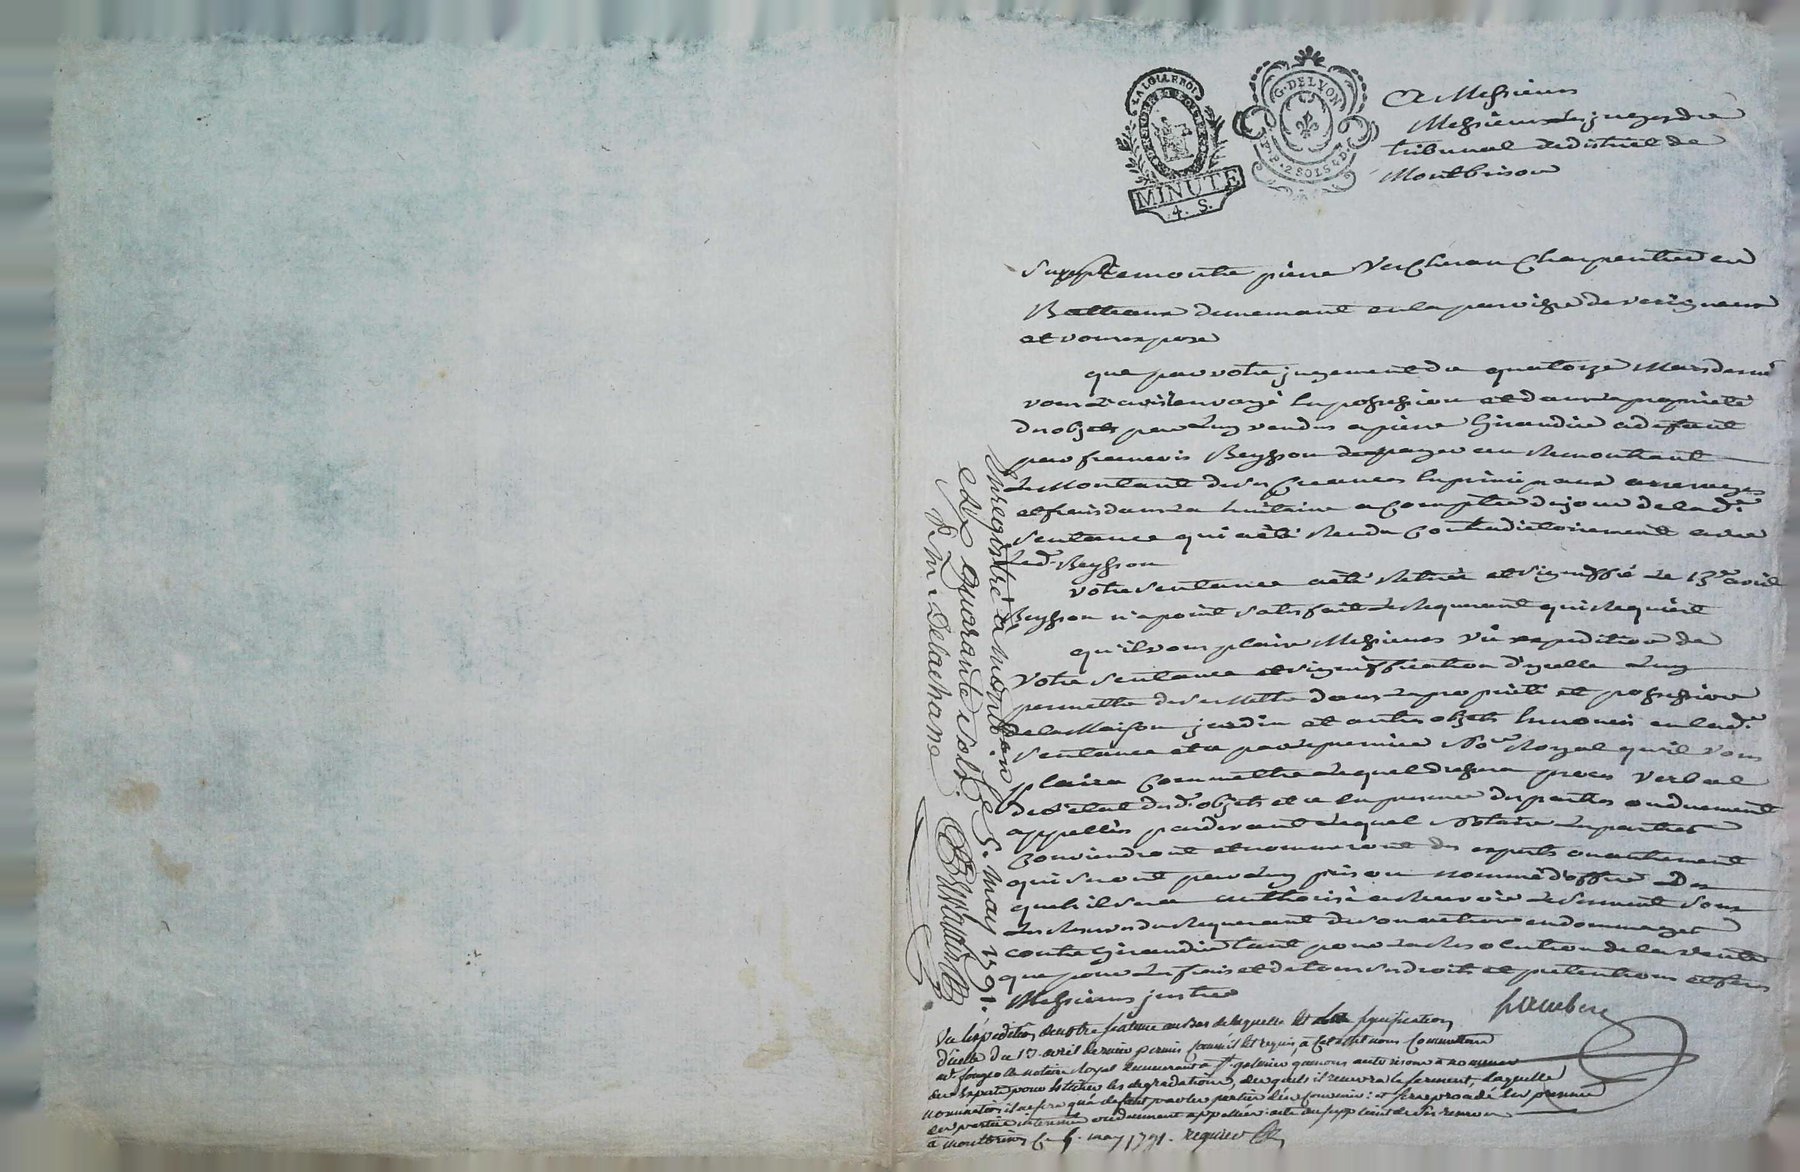 LA LOI LE ROI
MINUTE
4. S.
G. DE LYON
F. P. 2 SOLS 4 D.
A Messieurs
Messieurs Les juges du
tribunal de district de
Montbrison
Supplie remontre pierre Vercheran Charpentier en
Batteaux demeurant en la paroisse de
et vous expose
que par votre jugement du quatorze Mars dernier
vous avés envoyé en possession et dans la propriete
des objets par Luy vendus a pierre Giraudier a defaut
par francois Beysson de payer au Remontrant
Le Montant de ses Creances en principaux arrerages
et frais dans la huitaine a Compter du jour de lad.e
Sentence qui a été Rendu Contradictoirement avec
Led. Beysson
Votre Sentence a été Retiré et signiffié Le 13.e avril
Beysson n'a point satisfait Le Requerant qui Requiert
qu'il vous plaise Messieurs Vû expedition de
Votre Sentence et signiffication d'ycelle Luy
permettre de se Mettre dans La propriété et possession
de la Maison jardin et autres objets enoncés en lad.e
Sentence et ce par premier No.re Royal qu'il vous
plaira Commettre Lequel dressera procès Verbal
de L'état desd. objets et ce en presence des parties ou duement
appellées pardevant Lequel Notaire Les parties
Conviendront et nommeront des experts ou autrement
qui seront par Luy pris ou nommé d'office Des
quels il sera authorisé a Recevoir Le serment Sous
Les Reserves du Requerant de son action en dommages
contre Giraudier tant pour La Resolution de la vente
que pour Les frais et de tous ses droits et pretentions et ferés
Messieurs justice
Vu l'expedition de notre sentence au bas de laquelle est la signification
d'icelle du 13 avril dernier permis Comm'il est requis, à Cet effet nous Commettons
notaire Royal demeurant à St. galmier que nous autorisons à nommer
des Experts pour estimer les degradations, desquels il recevra le serment, laquelle
nomination il ne fera qu'à defaut par les parties d'en Convenir: et sera procedé en presence
des parties interessées ou duement appellées: acte du suppliant de ses reserves
à montbrison Ce 5. may 1791.
Enregistré à montbrison le 5. may 1791.
Reçu quarante sols.
Delachaize